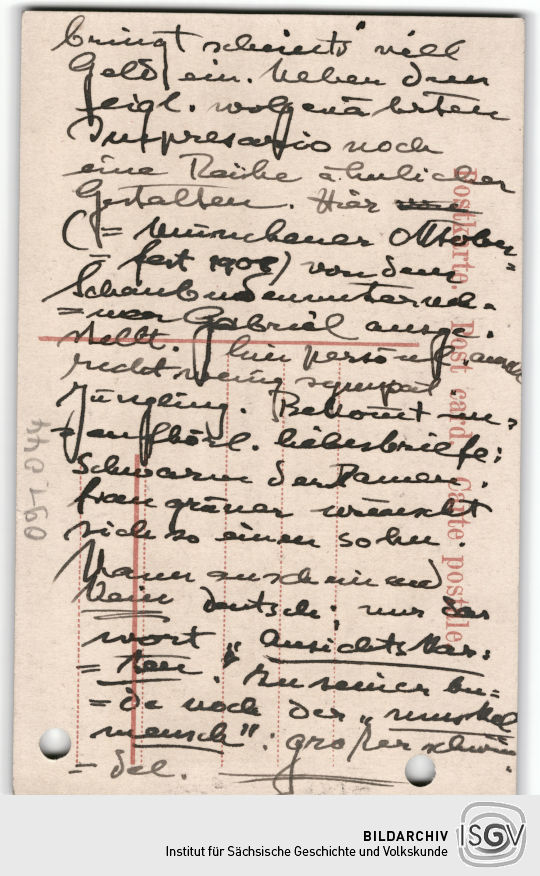 bringt scheints viell
Geld ein. neben dem
feigl. wolgenährten
Impresario noch
eine Reihe ähnlicher
Gestalten. Hier
(= Münchener Oktober-
= fest 1908) von dem
Schaubudenunterneh-
= mer Gabriel ausge-
stellt. persönl.
recht wenig sympat
Jüngling. Bekomt un-
= aufhörl. liebesbriefe;
Schwarm der Damen.
frau gräner wünscht
sich so einen sohn.
Kann anscheinend
kein deutsch; nur das
wort „Ansichtskar-
= ten". In seiner bu-
= de noch der „muskel
mensch": großer schwin-
= del.
Postkarte. Post card. Carte postale
097 044
BILDARCHIV
Institut für Sächsische Geschichte und Volkskunde
ISGV